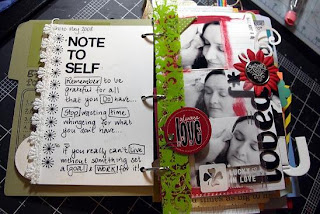 NOTE
TO
SELF
Remember to be
grateful for all
that you Do have...
Stop wasting time
whingeing for what
you don't have...
if you really can't live
without something set
a goal & work for it!
LOVE
LUCKY
IN LOVE